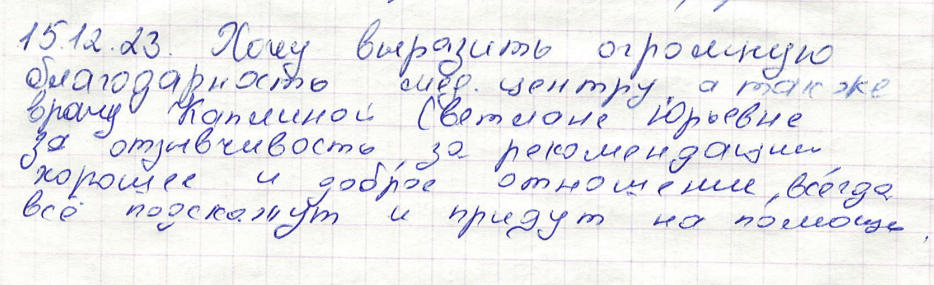 15.12.23. Хочу выразить огромную
благодарность мед. центру, а также
врачу Каплиной Светлане Юрьевне
за отзывчивость, за рекомендации
хорошее и доброе отношение, всегда
всё подскажут и придут на помощь.